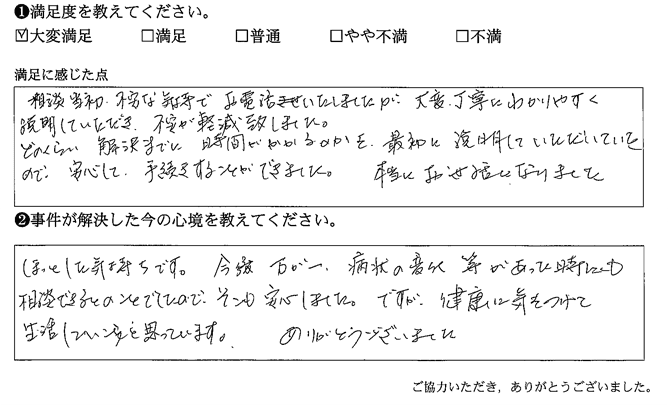 ❶満足度を教えてください。
☑大変満足 □満足 □普通 □やや不満 □不満
満足に感じた点
相談当初、不安な気持で お電話させいたしましたが、大変、丁寧にわかりやすく
説明していただき、不安が軽減致しました。
どのくらい 解決までに 時間がかかるのかを、最初に 説明していただいていた
ので、安心して、手続きすることができました。 本当に お世話になりました
❷事件が解決した今の心境を教えてください。
ほっとした気持ちです。 今後 万が一、病状の変化 等があった時にも
相談できるとのことでしたので、そこも 安心しました。ですが、健康に気をつけて
生活していこうと思っています。 ありがとうございました
ご協力いただき，ありがとうございました。